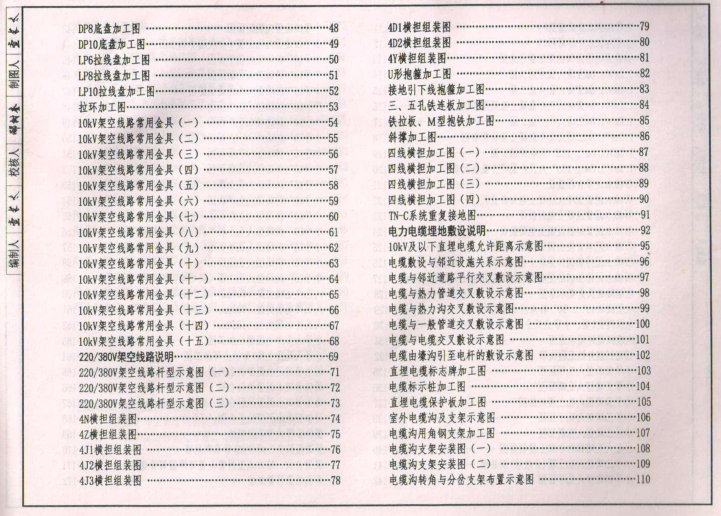 DP8底盘加工图 48
DP10底盘加工图 49
LP6拉线盘加工图 50
LP8拉线盘加工图 51
LP10拉线盘加工图 52
拉环加工图 53
10kV架空线路常用金具（一） 54
10kV架空线路常用金具（二） 55
10kV架空线路常用金具（三） 56
10kV架空线路常用金具（四） 57
10kV架空线路常用金具（五） 58
10kV架空线路常用金具（六） 59
10kV架空线路常用金具（七） 60
10kV架空线路常用金具（八） 61
10kV架空线路常用金具（九） 62
10kV架空线路常用金具（十） 63
10kV架空线路常用金具（十一） 64
10kV架空线路常用金具（十二） 65
10kV架空线路常用金具（十三） 66
10kV架空线路常用金具（十四） 67
10kV架空线路常用金具（十五） 68
220/380V架空线路说明 69
220/380V架空线路杆型示意图（一） 71
220/380V架空线路杆型示意图（二） 72
220/380V架空线路杆型示意图（三） 73
4N横担组装图 74
4Z横担组装图 75
4J1横担组装图 76
4J2横担组装图 77
4J3横担组装图 78
4D1横担组装图 79
4D2横担组装图 80
4Y横担组装图 81
U形抱箍加工图 82
接地引下线抱箍加工图 83
三、五孔铁连板加工图 84
铁拉板、M型抱铁加工图 85
斜撑加工图 86
四线横担加工图（一） 87
四线横担加工图（二） 88
四线横担加工图（三） 89
四线横担加工图（四） 90
TN-C系统重复接地图 91
电力电缆埋地敷设说明 92
10kV及以下直埋电缆允许距离示意图 95
电缆敷设与邻近设施关系示意图 96
电缆与邻近道路平行交叉敷设示意图 97
电缆与热力管道交叉敷设示意图 98
电缆与热力沟交叉敷设示意图 99
电缆与一般管道交叉敷设示意图 100
电缆与电缆交叉敷设示意图 101
电缆由壕沟引至电杆的敷设示意图 102
直埋电缆标志牌加工图 103
电缆标示桩加工图 104
直埋电缆保护板加工图 105
室外电缆沟及支架示意图 106
电缆沟用角钢支架加工图 107
电缆沟支架安装图（一） 108
电缆沟支架安装图（二） 109
电缆沟转角与分岔支架布置示意图 110
制图人
校核人
编制人